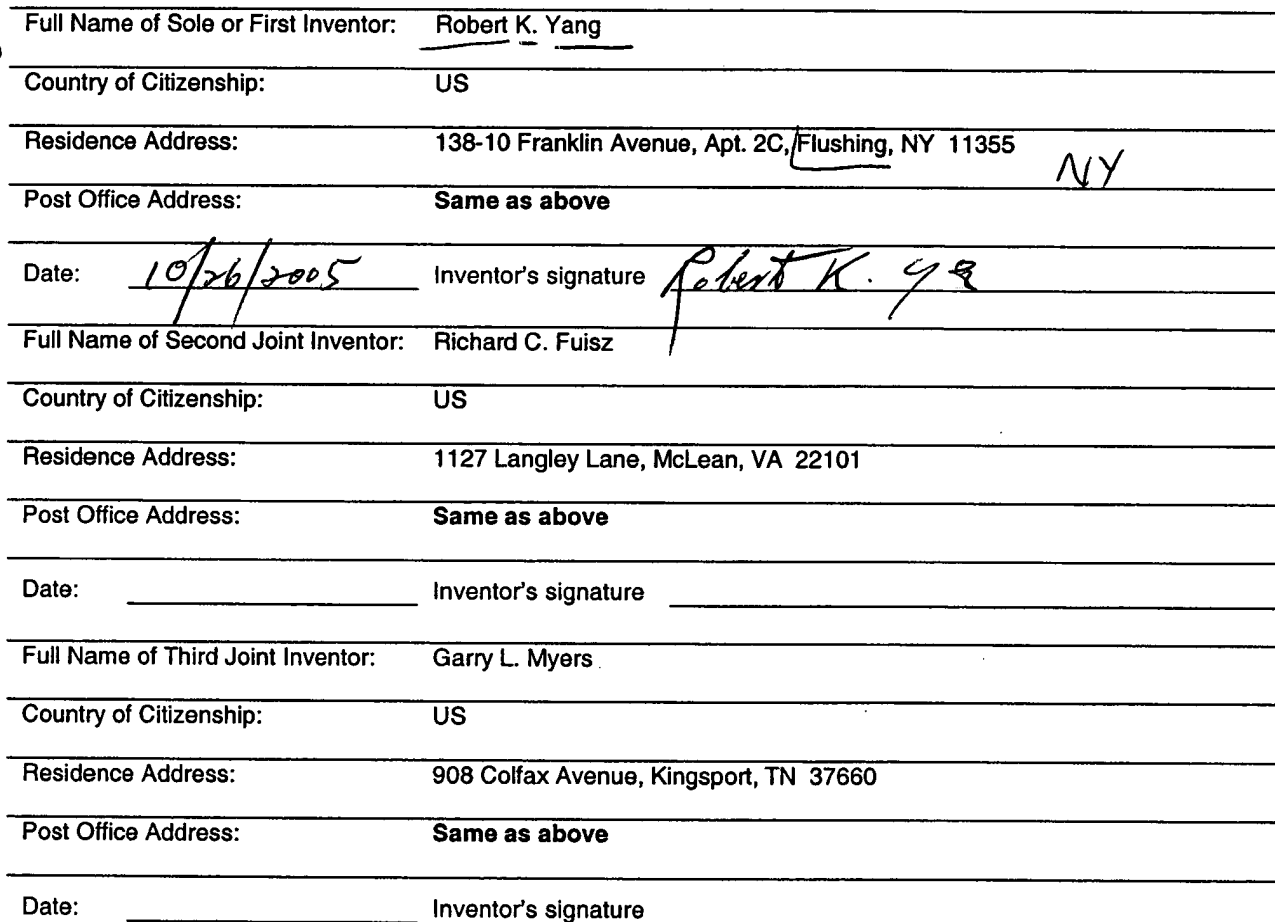 Full Name of Sole or First Inventor: Robert K. Yang
Country of Citizenship: US
Residence Address: 138-10 Franklin Avenue, Apt. 2C, Flushing, NY 11355
NY
Post Office Address: Same as above
Date: 10/26/2005 Inventor's signature Robert K. Ya
Full Name of Second Joint Inventor: Richard C. Fuisz
Country of Citizenship: US
Residence Address: 1127 Langley Lane, McLean, VA 22101
Post Office Address: Same as above
Date: Inventor's signature
Full Name of Third Joint Inventor: Garry L. Myers
Country of Citizenship: US
Residence Address: 908 Colfax Avenue, Kingsport, TN 37660
Post Office Address: Same as above
Date: Inventor's signature